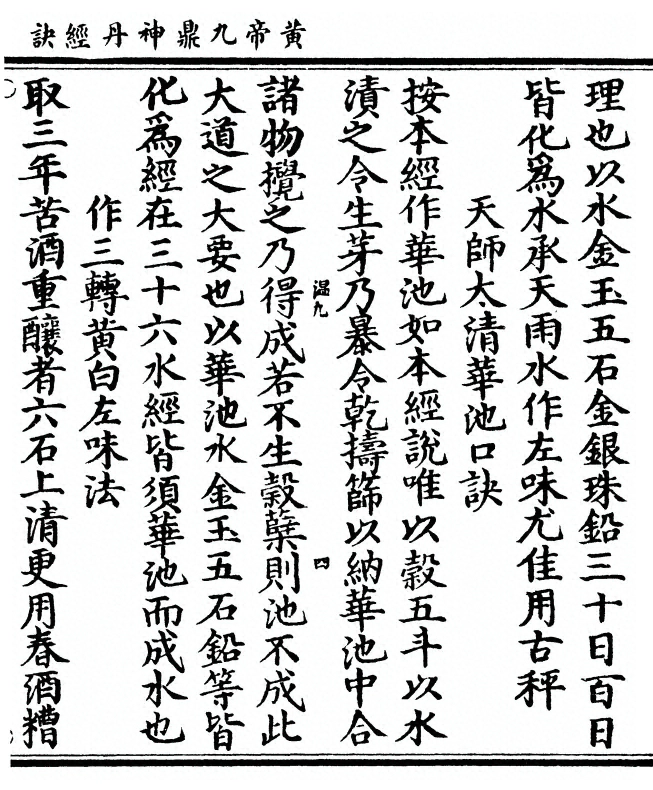 黃帝九鼎神丹經訣
理也以水金玉五石金銀珠鉛三十日百日
皆化爲水承天雨水作左味尤佳用古秤
天師大清華池口訣
按本經作華池如本經說唯以穀五斗以水
漬之令生芽乃暴令乾擣篩以納華池中合
温九
四
諸物攪之乃得成若不生穀蘖則池不成此
大道之大要也以華池水金玉五石鉛等皆
化爲經在三十六水經皆須華池而成水也
作三轉黃白左味法
取三年苦酒重釀者六石上清更用春酒糟